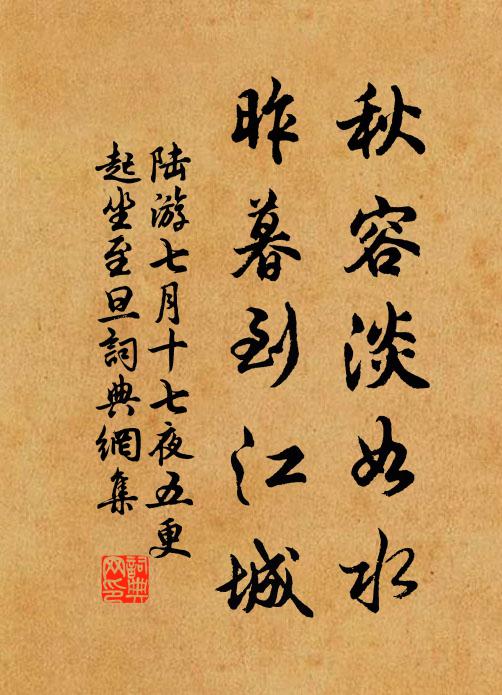 秋容淡如水
昨暮到江城
陆游七月十七夜五更
起坐至旦詞典網集
詞典网印